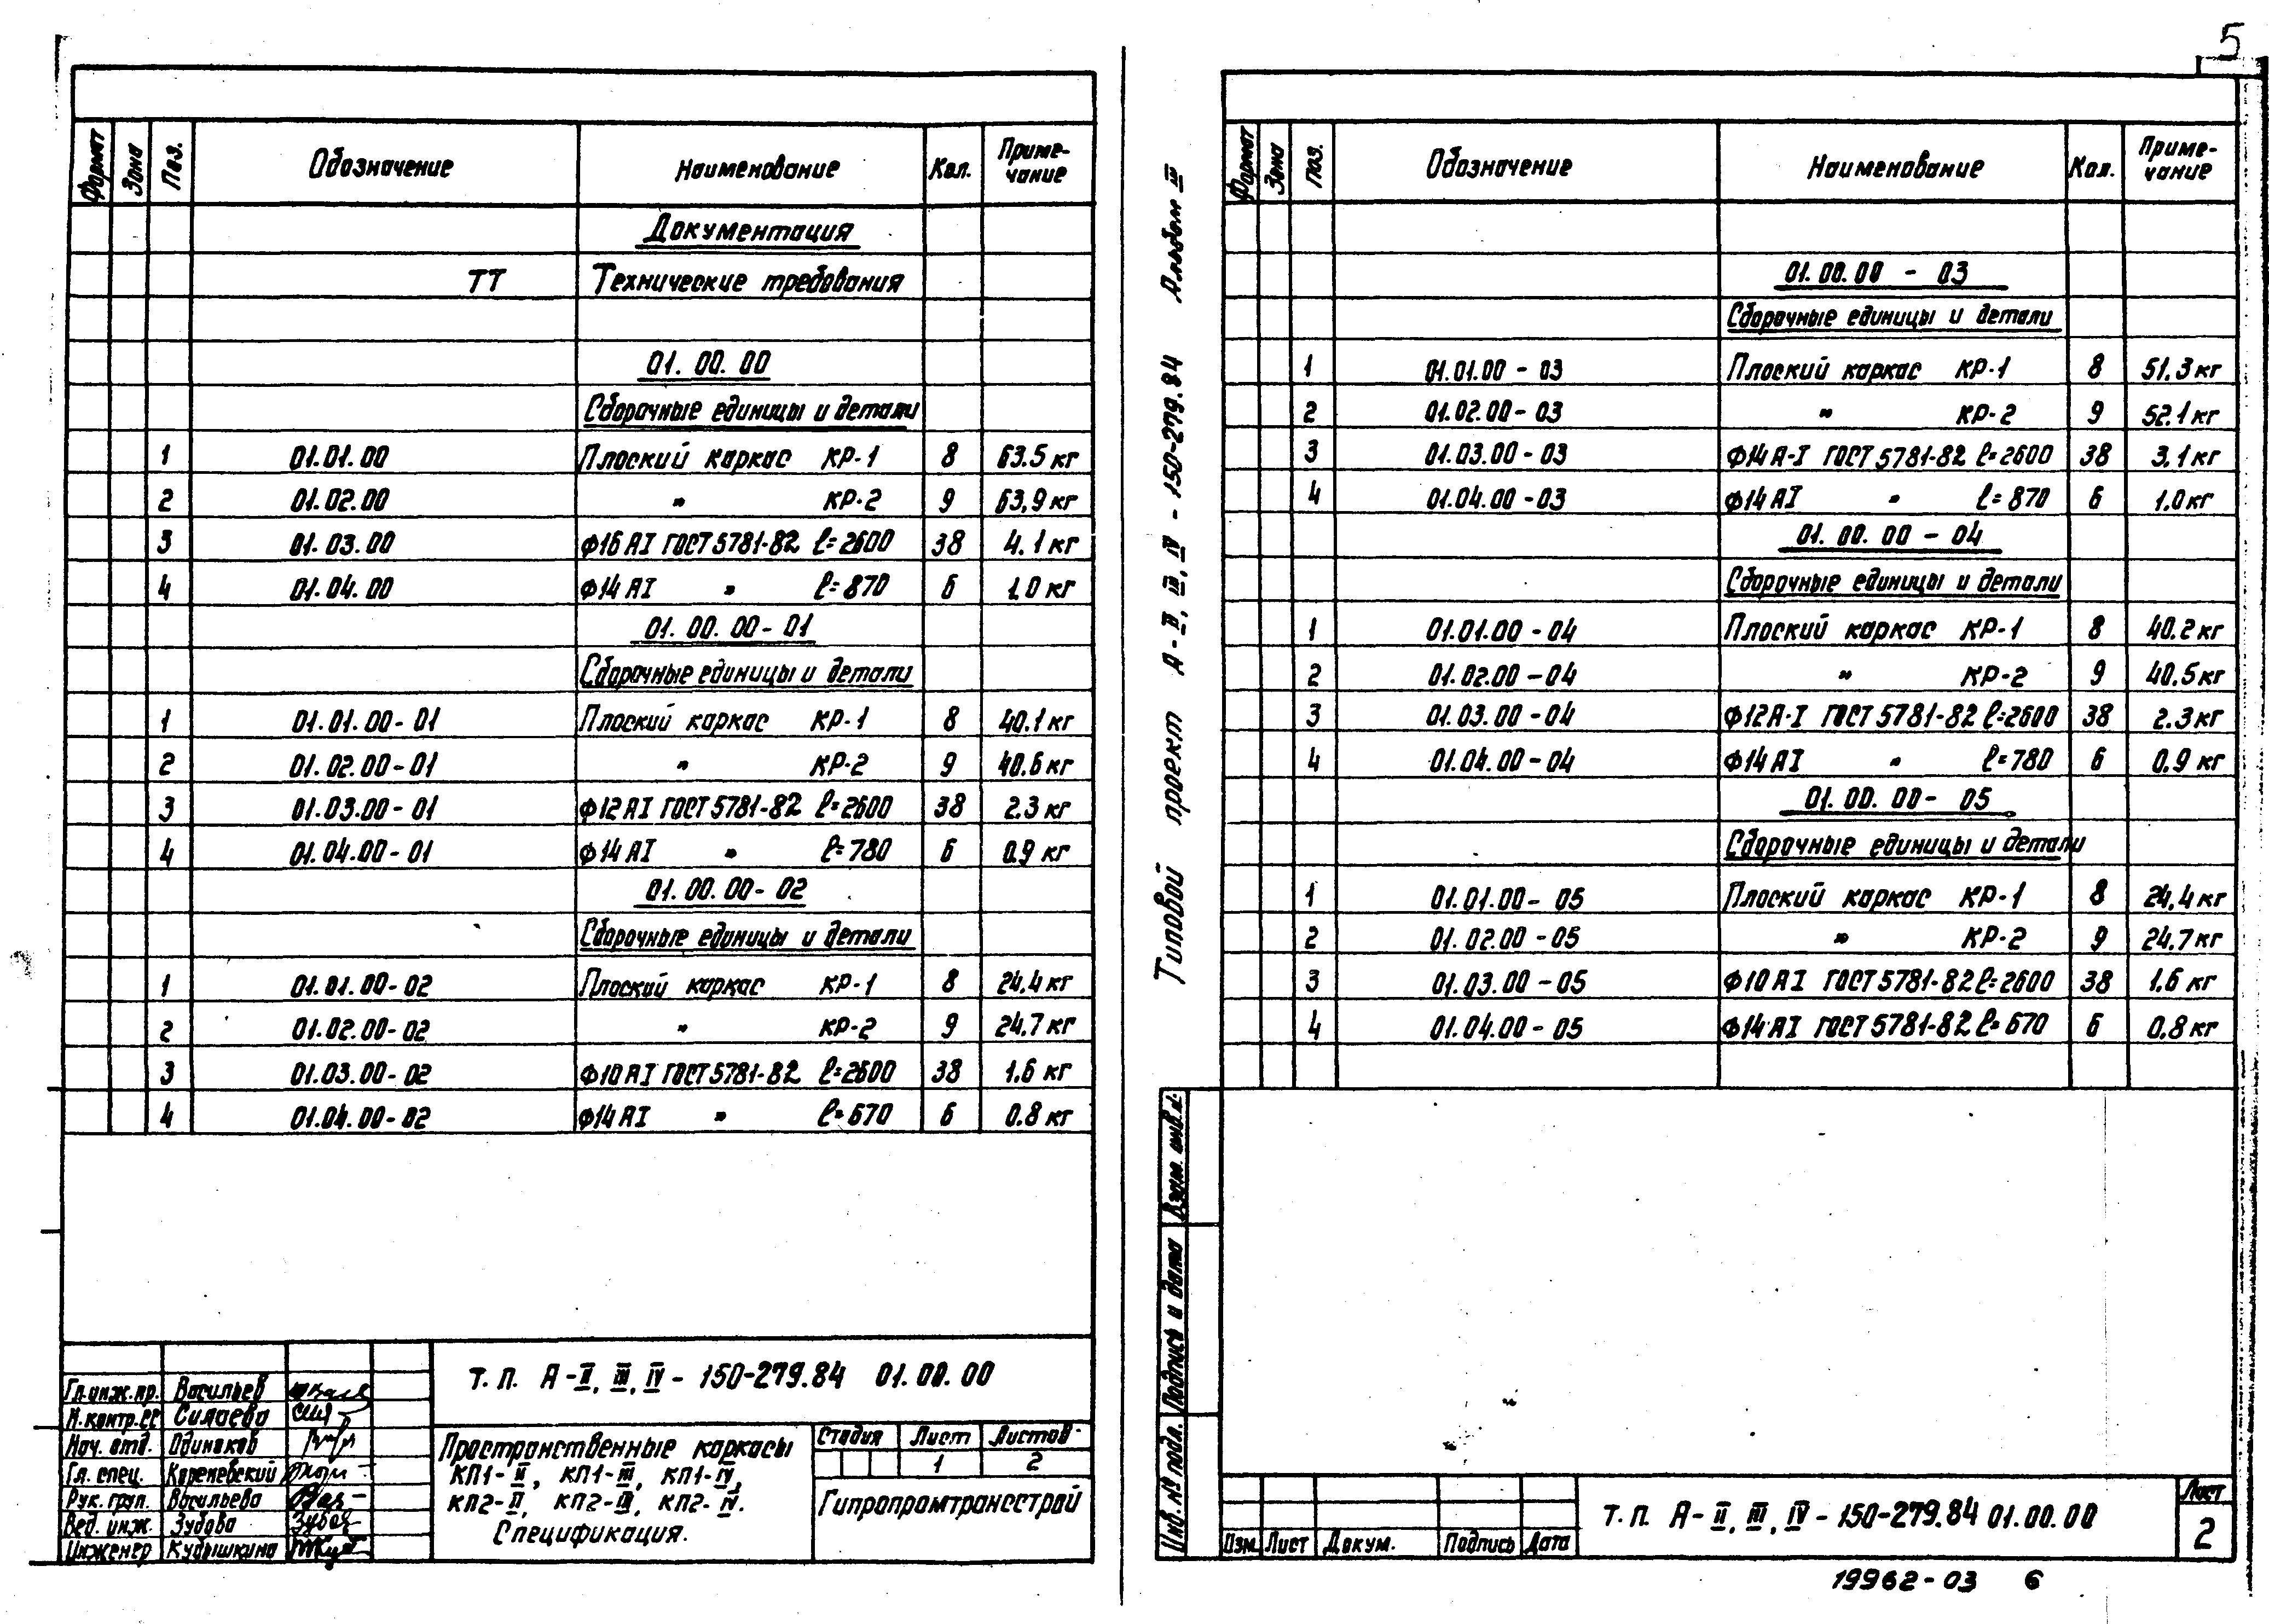 5
Формат Зона Поз. Обозначение Наименование Кол. Приме-
чание
Документация
ТТ Технические требования
01. 00. 00
Сборочные единицы и детали
1 01.01.00 Плоский каркас КР-1 8 63.5 кг
2 01.02.00 " КР-2 9 63,9 кг
3 01.03.00 Ф16 АI ГОСТ 5781-82 ℓ=2600 38 4.1 кг
4 01.04.00 Ф14 АI " ℓ=870 6 1.0 кг
01. 00. 00-01
Сборочные единицы и детали
1 01.01.00-01 Плоский каркас КР-1 8 40.1 кг
2 01.02.00-01 " КР-2 9 40.6 кг
3 01.03.00-01 Ф12 АI ГОСТ 5781-82 ℓ=2600 38 2.3 кг
4 01.04.00-01 Ф14 АI " ℓ=780 6 0.9 кг
01. 00. 00-02
Сборочные единицы и детали
1 01.01.00-02 Плоский каркас КР-1 8 24.4 кг
2 01.02.00-02 " КР-2 9 24.7 кг
3 01.03.00-02 Ф10 АI ГОСТ 5781-82 ℓ=2600 38 1.6 кг
4 01.04.00-02 Ф14 АI " ℓ=670 6 0.8 кг
Гл.инж.пр. Васильев
Н.контр. Силаева
Нач. отд. Одиноков
Гл. спец. Кореневский
Рук. груп. Васильева
Вед. инж. Зубова
Инженер Кубышкина
Т. П. А-II, III, IV - 150-279.84 01.00.00
Пространственные каркасы
КП1-II, КП1-III, КП1-IV,
КП2-II, КП2-III, КП2-IV.
Спецификация.
Стадия Лист Листов
1 2
Гипропромтрансстрой
Типовой проект А-II, III, IV - 150-279.84 Альбом III
Формат Зона Поз. Обозначение Наименование Кол. Приме-
чание
01. 00. 00 - 03
Сборочные единицы и детали
1 01.01.00-03 Плоский каркас КР-1 8 51.3 кг
2 01.02.00-03 " КР-2 9 52.1 кг
3 01.03.00-03 Ф14 А-I ГОСТ 5781-82 ℓ=2600 38 3.1 кг
4 01.04.00-03 Ф14 АI " ℓ=870 6 1.0 кг
01. 00. 00 - 04
Сборочные единицы и детали
1 01.01.00-04 Плоский каркас КР-1 8 40.2 кг
2 01.02.00-04 " КР-2 9 40.5 кг
3 01.03.00-04 Ф12 А-I ГОСТ 5781-82 ℓ=2600 38 2.3 кг
4 01.04.00-04 Ф14 АI " ℓ=780 6 0.9 кг
01. 00. 00- 05
Сборочные единицы и детали
1 01.01.00-05 Плоский каркас КР-1 8 24,4 кг
2 01.02.00-05 " КР-2 9 24.7 кг
3 01.03.00-05 Ф10 АI ГОСТ 5781-82 ℓ=2600 38 1.6 кг
4 01.04.00-05 Ф14 АI ГОСТ 5781-82 ℓ=670 6 0,8 кг
Взам. инв.№
Подпись и дата
Инв. № подл.
Изм. Лист Докум. Подпись Дата
Т. П. А-II, III, IV - 150-279.84 01.00.00
Лист
2
19962-03 6